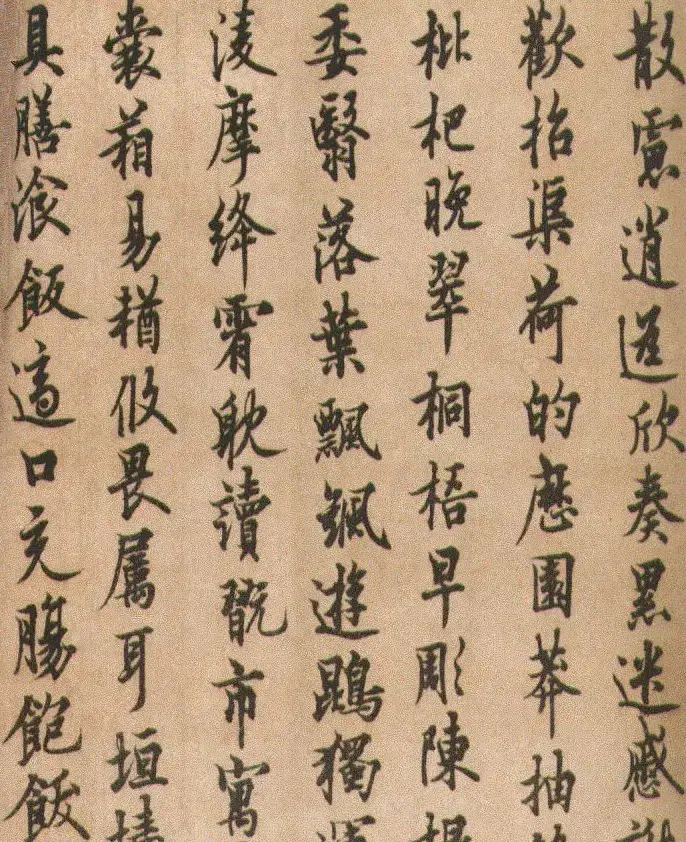 散慮逍遥欣奏累迷慼謝
歡招渠荷的歷園莽抽
枇杷晚翠桐梧早彫陳根
委翳落葉飄颻遊鵾獨運
淩摩絳霄耽讀翫市寓
囊箱易輶攸畏屬耳垣墻
具膳湌飯適口充腸飽飫